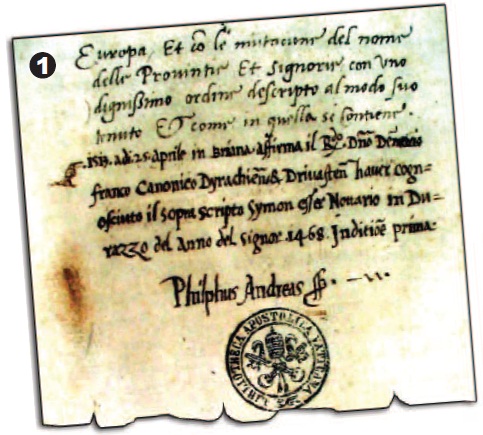 1
Europa, Et cõ le mutatione del nome
delle Provintie Et Signorie con uno
dignißimo ordine descripto al modo suo
tenuto Et come in quella si contiene.
1513. adi 25 Aprile in Briana affirma il R.do Dño Demetrio
franco Canonico Dyrachieñ & Drivasteñ haver cogn=
osciuto il sopra scripto Symon esser Notario in Du=
razzo del Anno del Signor 1468. Inditioẽ prima
Philphus Andreas
BIBLIOTHECA APOSTOLICA VATICANA